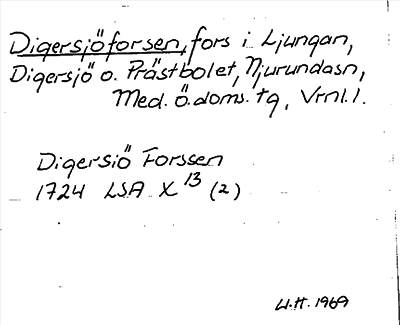 Digersjöforsen, fors i Ljungan,
Digersjö o. Prästbolet, Njurundasn,
Med. ö. doms. tg, Vrnl. l.
Digersiö Forssen
1724 LSA X 13 (2)
W.H. 1969